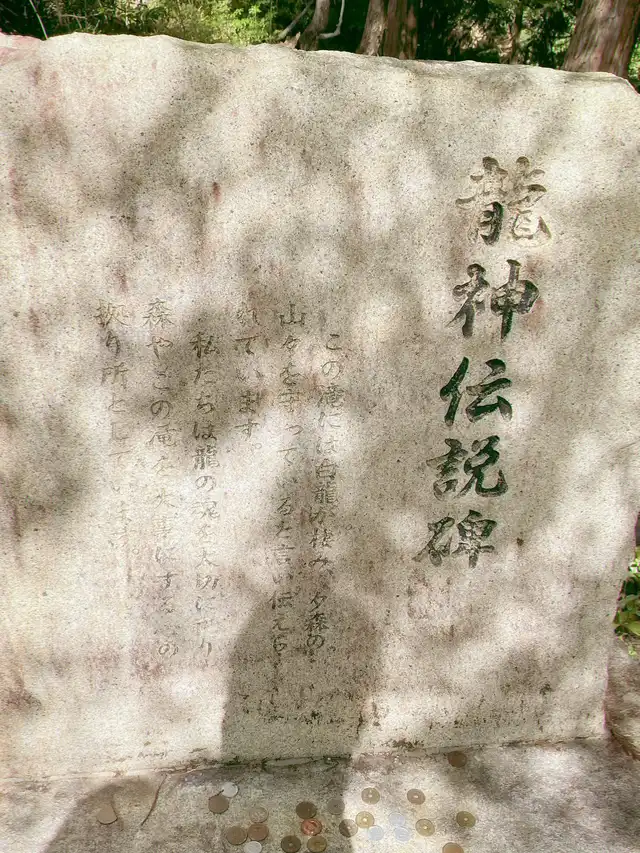 龍神伝説碑
この滝には白龍が棲み、夕森の
山々を守っていると言い伝えら
れています。
私たちは龍の泥 大切に守り
森やこの滝を大事にする心の
拠り所としています。